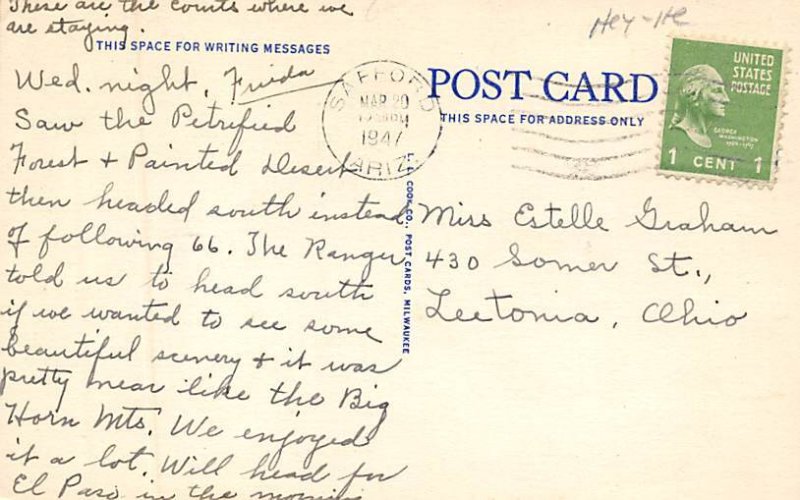 These are the courts where we
are staying.
THIS SPACE FOR WRITING MESSAGES
Wed. night, Frieda
Saw the Petrified
Forest + Painted Desert
then headed south instead
of following 66. The Ranger
told us to head south
if we wanted to see some
beautiful scenery + it was
pretty near like the Big
Horn Mts. We enjoyed
it a lot. Will head for
El Paso in the morning
SAFFORD
MAR 20
1947
ARIZ
E. C. COOK CO., POST CARDS, MILWAUKEE
Hey-He
POST CARD
THIS SPACE FOR ADDRESS ONLY
UNITED
STATES
POSTAGE
GEORGE
WASHINGTON
1 CENT 1
Miss Estelle Graham
430 Somer St.,
Leetonia, Ohio